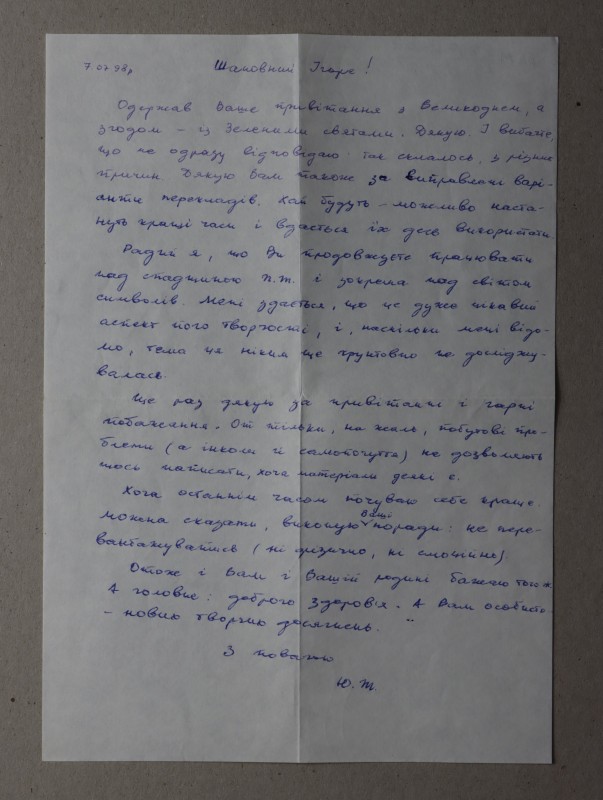 7.07.98р
Шановний Ігоре!
Одержав Ваше привітання з Великоднем, а
згодом – із Зеленими святами. Дякую. І вибачте,
що не одразу відповідаю: так склалось, з різних
причин. Дякую Вам також за виправлені варі-
анти перекладів. Хай будуть – можливо наста-
нуть кращі часи і вдасться їх десь використати.
Радий я, що Ви продовжуєте працювати
над спадщиною П.Т. і зокрема над світом
символів. Мені здається, що це дуже цікавий
аспект його творчості, і, наскільки мені відо-
мо, тема ця ніким ще ґрунтовно не досліджу-
валась.
Ще раз дякую за привітання і гарні
побажання. От тільки, на жаль, побутові про-
блеми (а інколи й самопочуття) не дозволяють
щось написати, хоча матеріали деякі є.
Хоча останнім часом почуваю себе краще.
можна сказати, виконую Ваші поради: не пере-
вантажуватись (ні фізично, ні емоційно).
Отож і Вам і Вашій родині бажаю того ж.
А головне: доброго здоров'я. А Вам особисто
– нових творчих досягнень.
З повагою
Ю.Т.